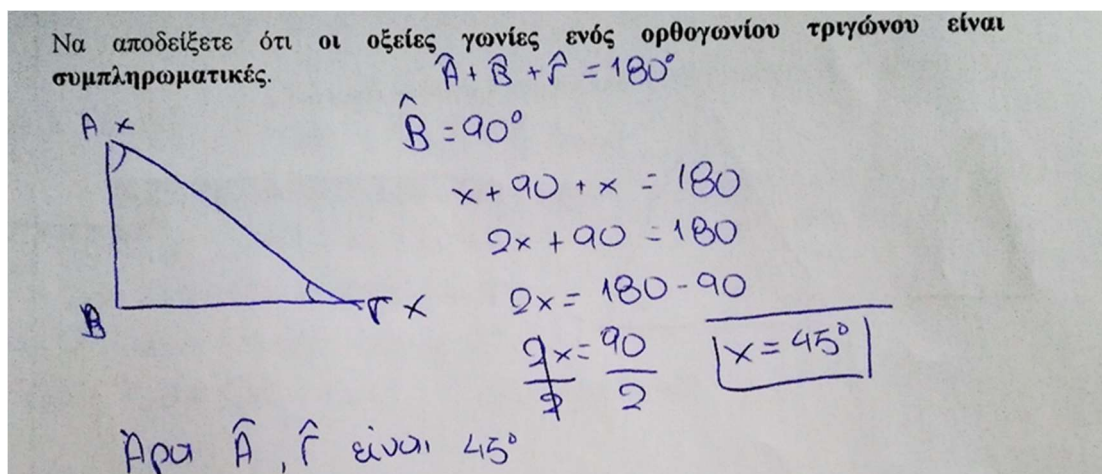 Να αποδείξετε ότι οι οξείες γωνίες ενός ορθογωνίου τριγώνου είναι
συμπληρωματικές.
Â + B̂ + Γ̂ = 180°
B̂ = 90°
A x
B
Γ x
x + 90 + x = 180
2x + 90 = 180
2x = 180 - 90
2x/2 = 90/2
x = 45°
Άρα Â, Γ̂ είναι 45°